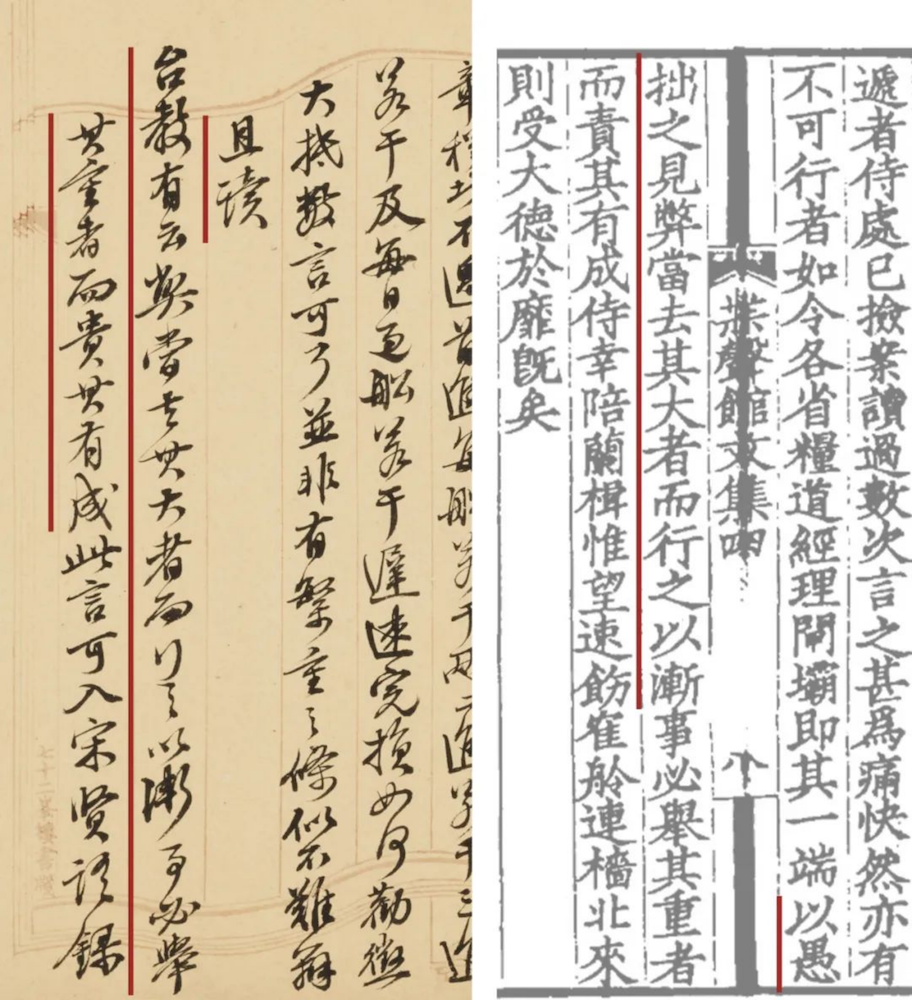 章程均不過首進每船若干兩二進若干三進
若干及每日過船若干遲速完損如何勸懲
大抵數言可了並非有繁重之條似不難辦
且讀
台教有云弊當去其大者而行之以漸事必舉
其重者而責其有成此言可入宋賢語錄
遞者侍處已撿案讀過數次言之甚爲痛快然亦有
不可行者如令各省糧道經理閘壩即其一端以愚
茮聲館文集四 八
拙之見弊當去其大者而行之以漸事必舉其重者
而責其有成侍幸陪蘭楫惟望速飭崔舲連檣北來
則受大德於靡旣矣